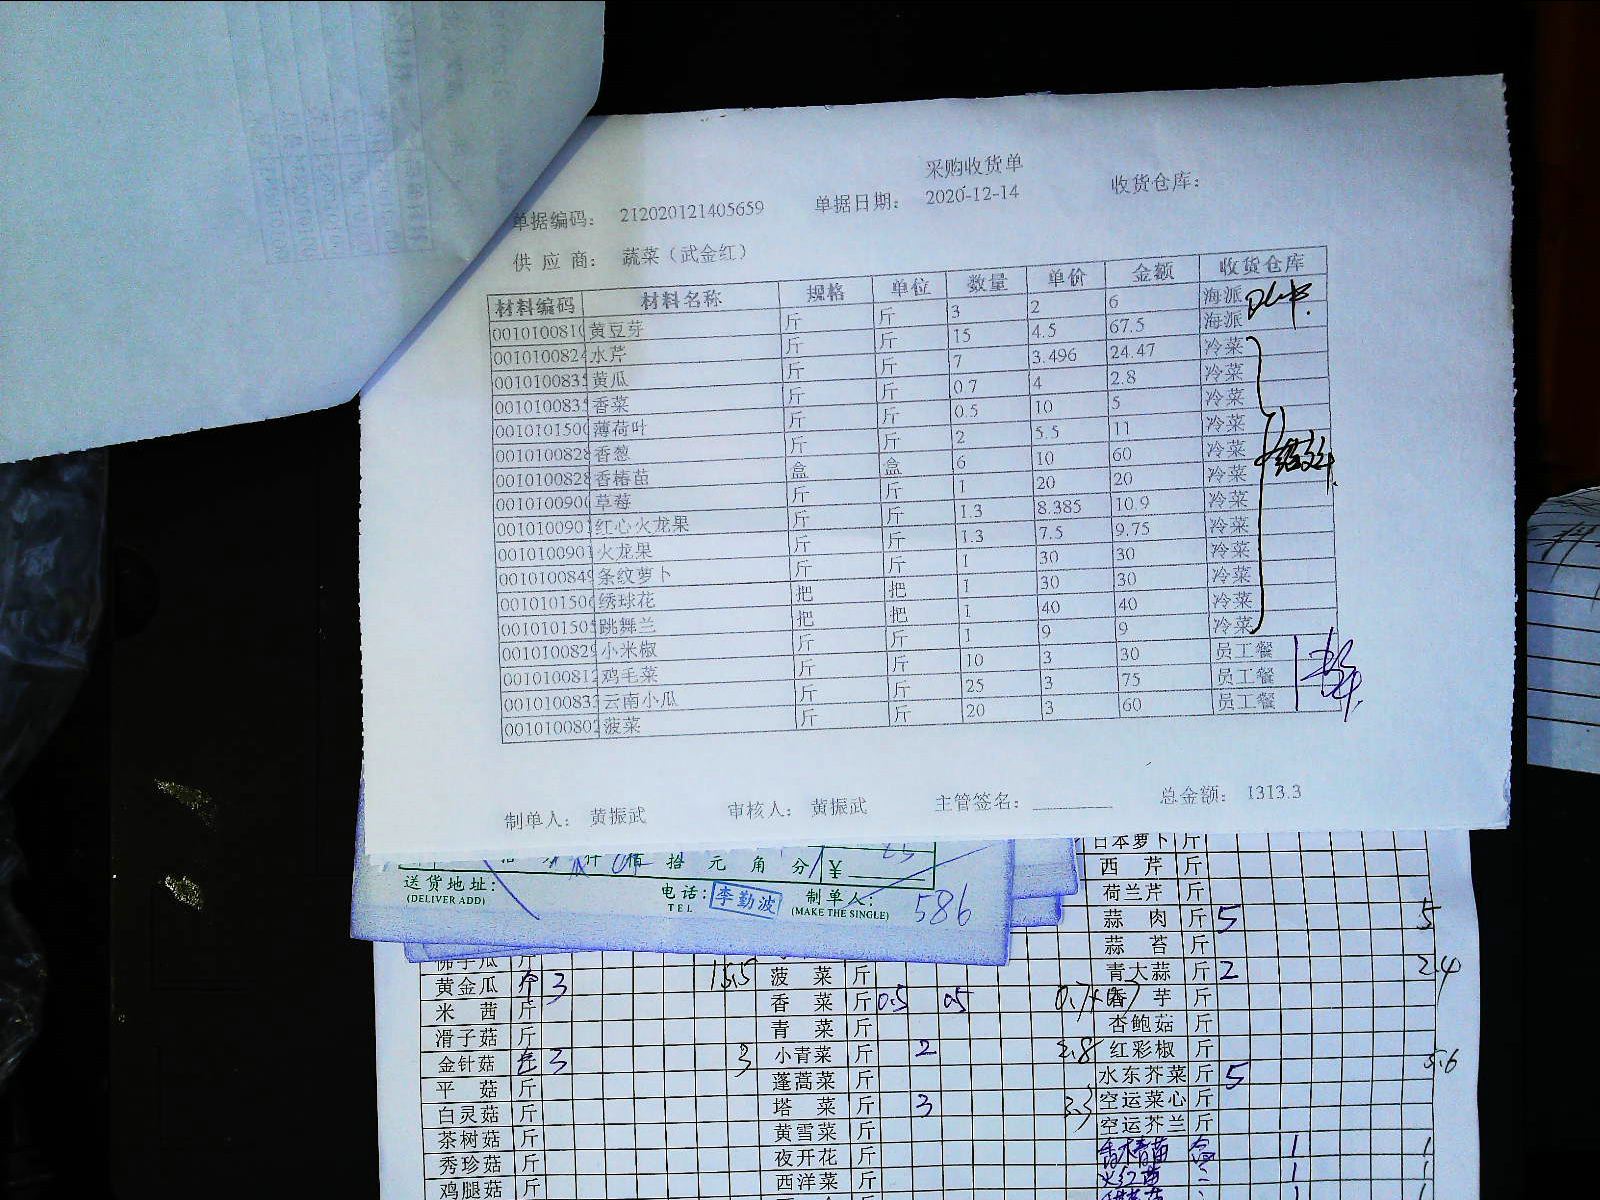 采购收货单
单据编码： 212020121405659 单据日期： 2020-12-14 收货仓库：
供 应 商： 蔬菜（武金红）
材料编码 材料名称 规格 单位 数量 单价 金额 收货仓库
001010081 黄豆芽 斤 斤 3 2 6 海派
001010082 水芹 斤 斤 15 4.5 67.5 海派
001010083 黄瓜 斤 斤 7 3.496 24.47 冷菜
001010083 香菜 斤 斤 0.7 4 2.8 冷菜
001010150 薄荷叶 斤 斤 0.5 10 5 冷菜
001010082 香葱 斤 斤 2 5.5 11 冷菜
001010082 香椿苗 盒 盒 6 10 60 冷菜
001010090 草莓 斤 斤 1 20 20 冷菜
001010090 红心火龙果 斤 斤 1.3 8.385 10.9 冷菜
001010090 火龙果 斤 斤 1.3 7.5 9.75 冷菜
001010084 条纹萝卜 斤 斤 1 30 30 冷菜
001010150 绣球花 把 把 1 30 30 冷菜
001010150 跳舞兰 把 把 1 40 40 冷菜
001010082 小米椒 斤 斤 1 9 9 冷菜
001010081 鸡毛菜 斤 斤 10 3 30 员工餐
001010083 云南小瓜 斤 斤 25 3 75 员工餐
001010080 菠菜 斤 斤 20 3 60 员工餐
制单人： 黄振武 审核人： 黄振武 主管签名： 总金额： 1313.3
拾 元 角 分 ¥
送货地址：
(DELIVER ADD)
电话：
TEL
李勤波
制单人：
(MAKE THE SINGLE)
586
日本萝卜 斤
西 芹 斤
荷兰芹 斤
蒜 肉 斤 5 5
蒜 苔 斤
佛手瓜 斤 青大蒜 斤 2 2.4
黄金瓜 3 15.5 菠 菜 斤 香 芋 斤
米 茜 斤 香 菜 斤 0.5 0.5 杏鲍菇 斤
滑子菇 斤 青 菜 斤 红彩椒 斤
金针菇 3 3 小青菜 斤 2 2.8 水东芥菜 斤 5 5.6
平 菇 斤 蓬蒿菜 斤 空运菜心 斤
白灵菇 斤 塔 菜 斤 3 3.3 空运芥兰 斤
茶树菇 斤 黄雪菜 斤 1 1
秀珍菇 斤 夜开花 斤 1 1
鸡腿菇 斤 西洋菜 斤